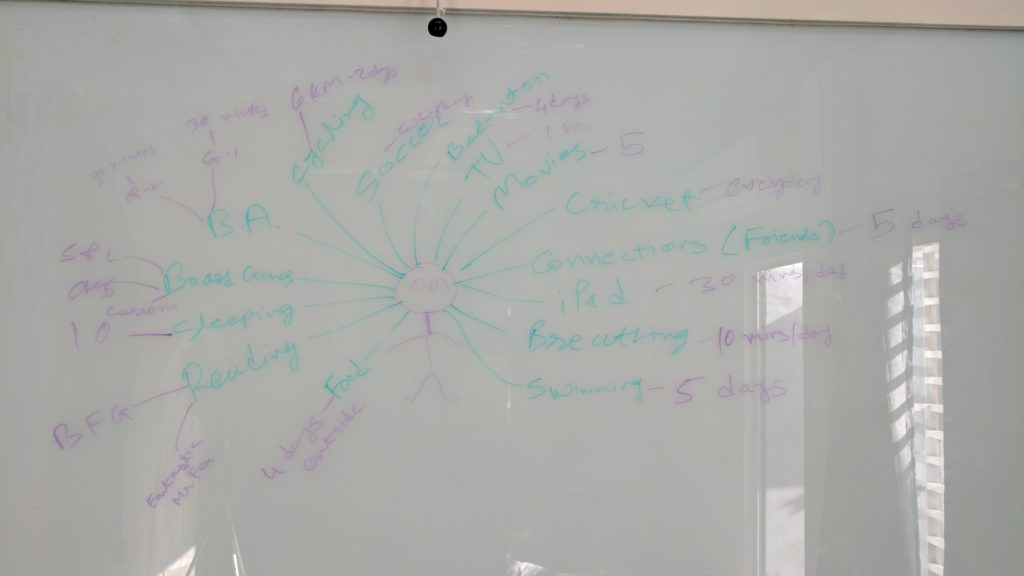 6 KM - 2 days
Cycling
Soccer
everyday
Badminton - 4 days
TV - 1 hr
Movies - 5
Cricket - everyday
Connections (Friends) - 5 days
iPad - 30 mins/day
Breathing - 10 mins/day
Swimming - 5 days
OM
30 minutes
G-1
30 minutes
B.A.
S & L
Chess
Carrom
Board Games
10 - Sleeping
Reading
BFG
Fantastic
Mr. Fox
Food
4 days
outside